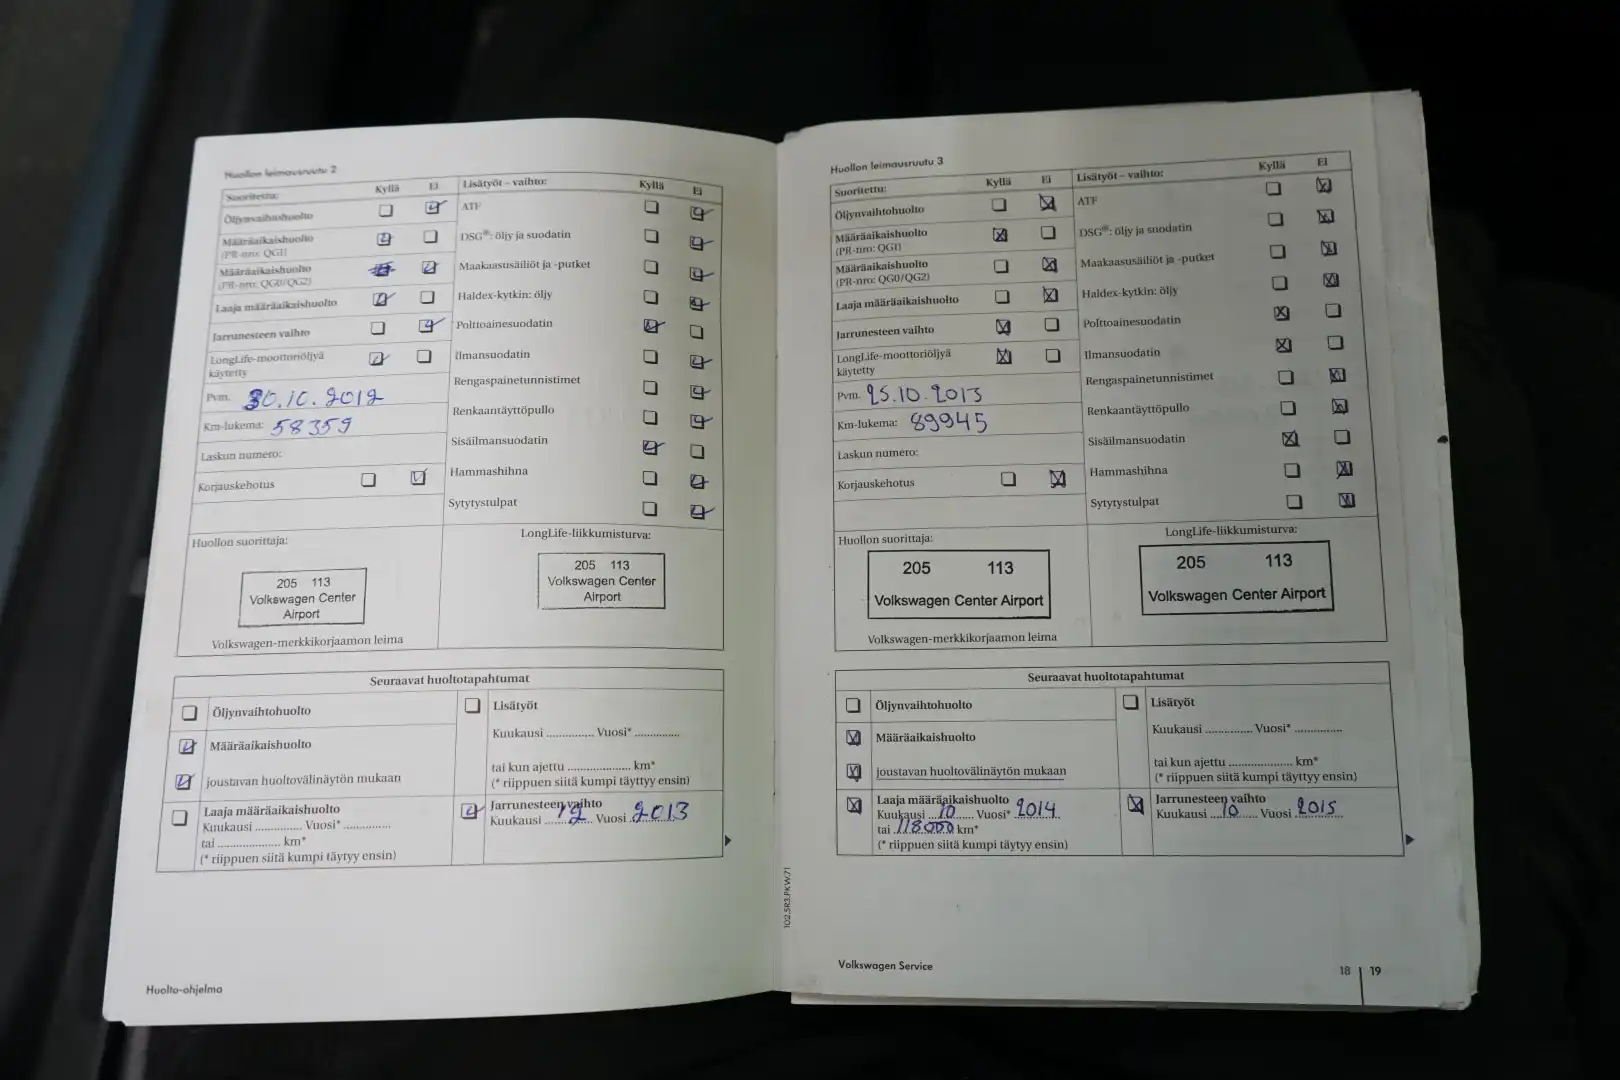 Huollon leimausruutu 2
Suoritettu: Kyllä Ei Lisätyöt – vaihto: Kyllä Ei
Öljynvaihtohuolto ATF
Määräaikaishuolto DSG®: öljy ja suodatin
(PR-nro: QG1)
Määräaikaishuolto Maakaasusäiliöt ja -putket
(PR-nro: QG0/QG2)
Laaja määräaikaishuolto Haldex-kytkin: öljy
Jarrunesteen vaihto Polttoainesuodatin
LongLife-moottoriöljyä Ilmansuodatin
käytetty
Pvm. 30.10.2012 Rengaspainetunnistimet
Km-lukema: 58359 Renkaantäyttöpullo
Laskun numero: Sisäilmansuodatin
Korjauskehotus Hammashihna
Sytytystulpat
Huollon suorittaja: LongLife-liikkumisturva:
205 113
Volkswagen Center
Airport
205 113
Volkswagen Center
Airport
Volkswagen-merkkikorjaamon leima
Seuraavat huoltotapahtumat
Öljynvaihtohuolto Lisätyöt
Määräaikaishuolto Kuukausi ............... Vuosi* ..............
joustavan huoltovälinäytön mukaan tai kun ajettu .................... km*
(* riippuen siitä kumpi täyttyy ensin)
Laaja määräaikaishuolto Jarrunesteen vaihto
Kuukausi .............. Vuosi* ............... Kuukausi 12 Vuosi 2013
tai .................... km*
(* riippuen siitä kumpi täytyy ensin)
Huolto-ohjelma
Huollon leimausruutu 3
Suoritettu: Kyllä Ei Lisätyöt – vaihto: Kyllä Ei
Öljynvaihtohuolto ATF
Määräaikaishuolto DSG®: öljy ja suodatin
(PR-nro: QG1)
Määräaikaishuolto Maakaasusäiliöt ja -putket
(PR-nro: QG0/QG2)
Laaja määräaikaishuolto Haldex-kytkin: öljy
Jarrunesteen vaihto Polttoainesuodatin
LongLife-moottoriöljyä Ilmansuodatin
käytetty
Pvm. 25.10.2013 Rengaspainetunnistimet
Km-lukema: 89945 Renkaantäyttöpullo
Laskun numero: Sisäilmansuodatin
Korjauskehotus Hammashihna
Sytytystulpat
Huollon suorittaja: LongLife-liikkumisturva:
205 113
Volkswagen Center Airport
205 113
Volkswagen Center Airport
Volkswagen-merkkikorjaamon leima
Seuraavat huoltotapahtumat
Öljynvaihtohuolto Lisätyöt
Määräaikaishuolto Kuukausi ............... Vuosi* ...............
joustavan huoltovälinäytön mukaan tai kun ajettu .................... km*
(* riippuen siitä kumpi täyttyy ensin)
Laaja määräaikaishuolto Jarrunesteen vaihto
Kuukausi 10 Vuosi* 2014 Kuukausi 10 Vuosi 2015
tai 118000 km*
(* riippuen siitä kumpi täytyy ensin)
102.5R3.PKW.71
Volkswagen Service 18 19